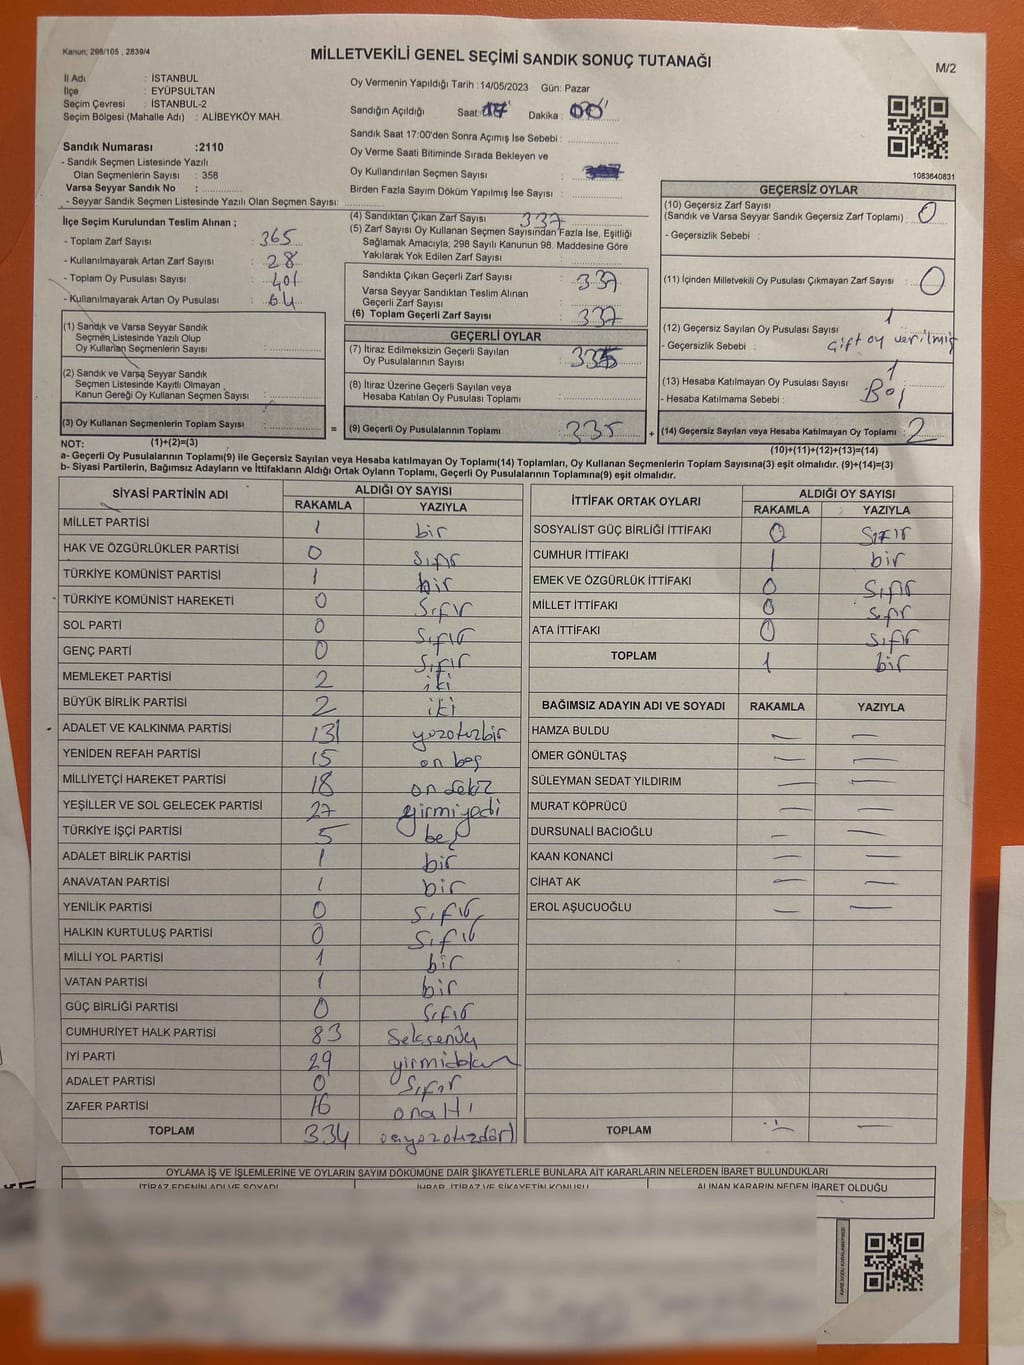 Kanun; 298/105 , 2839/4
MİLLETVEKİLİ GENEL SEÇİMİ SANDIK SONUÇ TUTANAĞI
M/2
İl Adı : İSTANBUL
İlçe : EYÜPSULTAN
Seçim Çevresi : İSTANBUL-2
Seçim Bölgesi (Mahalle Adı) : ALİBEYKÖY MAH
Oy Vermenin Yapıldığı Tarih :14/05/2023 Gün: Pazar
Sandığın Açıldığı Saat: 17 Dakika : 00
Sandık Saat 17:00'den Sonra Açımış İse Sebebi :
Oy Verme Saati Bitiminde Sırada Bekleyen ve
Oy Kullandırılan Seçmen Sayısı :
Birden Fazla Sayım Döküm Yapılmış İse Sayısı :
Sandık Numarası :2110
- Sandık Seçmen Listesinde Yazılı
Olan Seçmenlerin Sayısı : 358
Varsa Seyyar Sandık No :
- Seyyar Sandık Seçmen Listesinde Yazılı Olan Seçmen Sayısı:
1083640831
İlçe Seçim Kurulundan Teslim Alınan ;
- Toplam Zarf Sayısı : 365
- Kullanılmayarak Artan Zarf Sayısı : 28
- Toplam Oy Pusulası Sayısı : 401
- Kullanılmayarak Artan Oy Pusulası : 64
(1) Sandık ve Varsa Seyyar Sandık
Seçmen Listesinde Yazılı Olup
Oy Kullanan Seçmenlerin Sayısı :
(2) Sandık ve Varsa Seyyar Sandık
Seçmen Listesinde Kayıtlı Olmayan
Kanun Gereği Oy Kullanan Seçmen Sayısı :
(3) Oy Kullanan Seçmenlerin Toplam Sayısı :
(4) Sandıktan Çıkan Zarf Sayısı : 337
(5) Zarf Sayısı Oy Kullanan Seçmen Sayısından Fazla İse, Eşitliği
Sağlamak Amacıyla; 298 Sayılı Kanunun 98. Maddesine Göre
Yakılarak Yok Edilen Zarf Sayısı :
Sandıkta Çıkan Geçerli Zarf Sayısı : 337
Varsa Seyyar Sandıktan Teslim Alınan
Geçerli Zarf Sayısı :
(6) Toplam Geçerli Zarf Sayısı : 337
GEÇERLİ OYLAR
(7) İtiraz Edilmeksizin Geçerli Sayılan
Oy Pusulalarının Sayısı : 335
(8) İtiraz Üzerine Geçerli Sayılan veya
Hesaba Katılan Oy Pusulası Toplamı :
= (9) Geçerli Oy Pusulalarının Toplamı : 335
GEÇERSİZ OYLAR
(10) Geçersiz Zarf Sayısı
(Sandık ve Varsa Seyyar Sandık Geçersiz Zarf Toplamı) : 0
- Geçersizlik Sebebi :
(11) İçinden Milletvekili Oy Pusulası Çıkmayan Zarf Sayısı : 0
(12) Geçersiz Sayılan Oy Pusulası Sayısı : 1
- Geçersizlik Sebebi : Çift oy verilmiş
(13) Hesaba Katılmayan Oy Pusulası Sayısı : 1
- Hesaba Katılmama Sebebi : Boş
+ (14) Geçersiz Sayılan veya Hesaba Katılmayan Oy Toplamı : 2
NOT: (1)+(2)=(3)
(10)+(11)+(12)+(13)=(14)
a- Geçerli Oy Pusulalarının Toplamı(9) ile Geçersiz Sayılan veya Hesaba katılmayan Oy Toplamı(14) Toplamları, Oy Kullanan Seçmenlerin Toplam Sayısına(3) eşit olmalıdır. (9)+(14)=(3)
b- Siyasi Partilerin, Bağımsız Adayların ve İttifakların Aldığı Ortak Oyların Toplamı, Geçerli Oy Pusulalarının Toplamına(9) eşit olmalıdır.
SİYASİ PARTİNİN ADI ALDIĞI OY SAYISI
RAKAMLA YAZIYLA
MİLLET PARTİSİ 1 bir
HAK VE ÖZGÜRLÜKLER PARTİSİ 0 Sıfır
TÜRKİYE KOMÜNİST PARTİSİ 1 bir
TÜRKİYE KOMÜNİST HAREKETİ 0 Sıfır
SOL PARTİ 0 Sıfır
GENÇ PARTİ 0 Sıfır
MEMLEKET PARTİSİ 2 iki
BÜYÜK BİRLİK PARTİSİ 2 iki
ADALET VE KALKINMA PARTİSİ 131 yüzotuzbir
YENİDEN REFAH PARTİSİ 15 on beş
MİLLİYETÇİ HAREKET PARTİSİ 18 on sekiz
YEŞİLLER VE SOL GELECEK PARTİSİ 27 yirmiyedi
TÜRKİYE İŞÇİ PARTİSİ 5 beş
ADALET BİRLİK PARTİSİ 1 bir
ANAVATAN PARTİSİ 1 bir
YENİLİK PARTİSİ 0 Sıfır
HALKIN KURTULUŞ PARTİSİ 0 Sıfır
MİLLİ YOL PARTİSİ 1 bir
VATAN PARTİSİ 1 bir
GÜÇ BİRLİĞİ PARTİSİ 0 Sıfır
CUMHURİYET HALK PARTİSİ 83 Seksenüç
İYİ PARTİ 29 yirmidokuz
ADALET PARTİSİ 0 Sıfır
ZAFER PARTİSİ 16 onaltı
TOPLAM 334 üçyüzotuzdört
İTTİFAK ORTAK OYLARI ALDIĞI OY SAYISI
RAKAMLA YAZIYLA
SOSYALİST GÜÇ BİRLİĞİ İTTİFAKI 0 Sıfır
CUMHUR İTTİFAKI 1 bir
EMEK VE ÖZGÜRLÜK İTTİFAKI 0 Sıfır
MİLLET İTTİFAKI 0 Sıfır
ATA İTTİFAKI 0 Sıfır
TOPLAM 1 bir
BAĞIMSIZ ADAYIN ADI VE SOYADI RAKAMLA YAZIYLA
HAMZA BULDU — —
ÖMER GÖNÜLTAŞ — —
SÜLEYMAN SEDAT YILDIRIM — —
MURAT KÖPRÜCÜ — —
DURSUNALİ BACIOĞLU — —
KAAN KONANCİ — —
CİHAT AK — —
EROL AŞUCUOĞLU — —
TOPLAM — —
OYLAMA İŞ VE İŞLEMLERİNE VE OYLARIN SAYIM DÖKÜMÜNE DAİR ŞİKAYETLERLE BUNLARA AİT KARARLARIN NELERDEN İBARET BULUNDUKLARI
İTİRAZ EDENİN ADI VE SOYADI İHBAR, İTİRAZ VE ŞİKAYETİN KONUSU ALINAN KARARIN NEDEN İBARET OLDUĞU